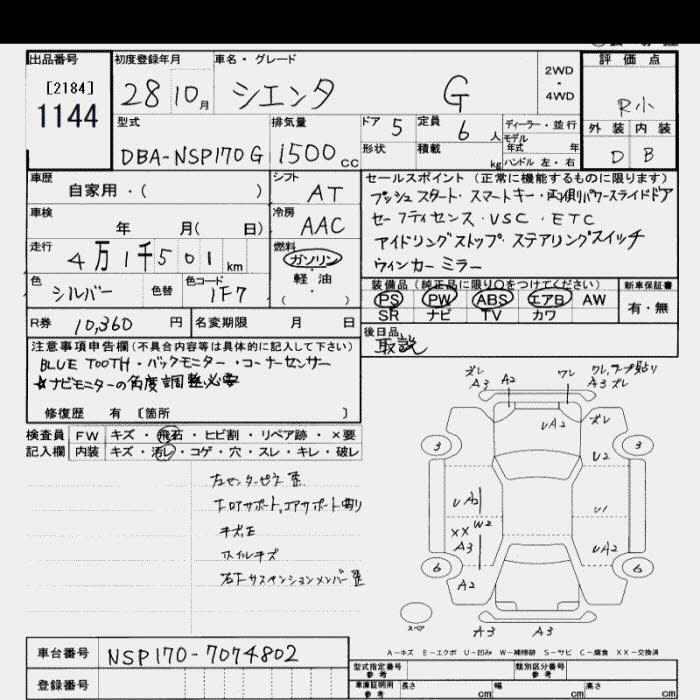 出品番号
[2184]
1144
初度登録年月
28 10月
車名・グレード
シエンタ G
2WD
・
4WD
評価点
R小
外装 内装
D B
型式
DBA-NSP170G
排気量
1500cc
ドア 5
定員 6人
形状
積載 kg
ディーラー・並行
モデル年式 年
ハンドル 左・右
車歴
自家用・( )
シフト
AT
車検
年 月( 日)
冷房
AAC
走行
4万1千501km
燃料
ガソリン
・
軽油
色
シルバー
色替
色コード
1F7
セールスポイント (正常に機能するものに限ります)
プッシュスタート・スマートキー・両側パワースライドドア
セーフティセンス・VSC・ETC
アイドリングストップ・ステアリングスイッチ
ウィンカーミラー
装備品(純正品に限り○をつけてください)
PS PW ABS エアB AW
SR ナビ TV カワ
新車保証書
有・無
R券 10,360 円
名変期限 月 日
後日品
取説
注意事項申告欄(不具合内容等は具体的に記入して下さい)
BLUE TOOTH・バックモニター・コーナーセンサー
☆ナビモニターの角度調整必要
修復歴 有 [箇所 ]
検査員 FW キズ・飛石・ヒビ割・リペア跡・×要
記入欄 内装 キズ・汚レ・コゲ・穴・スレ・キレ・破レ
左センターピラー歪
下ロアサポート、コアサポート曲り
キズ、凹
ホイルキズ
右下サスペンションメンバー歪
ズレ
A3
A2
ワレ
A3 ズレ
UA2
ズレ
3
3
U2
UA2
W2
XX
A3
U1
UA2
6
6
A2
A3
A3
スペア
A-キズ E-エクボ U-凹み W-補修跡 S-サビ C-腐食 XX-交換済
車台番号
NSP170-7074802
登録番号
型式指定番号
参考
類別区分番号
参考
車庫証明用
参考
長さ cm
幅 cm
高さ cm